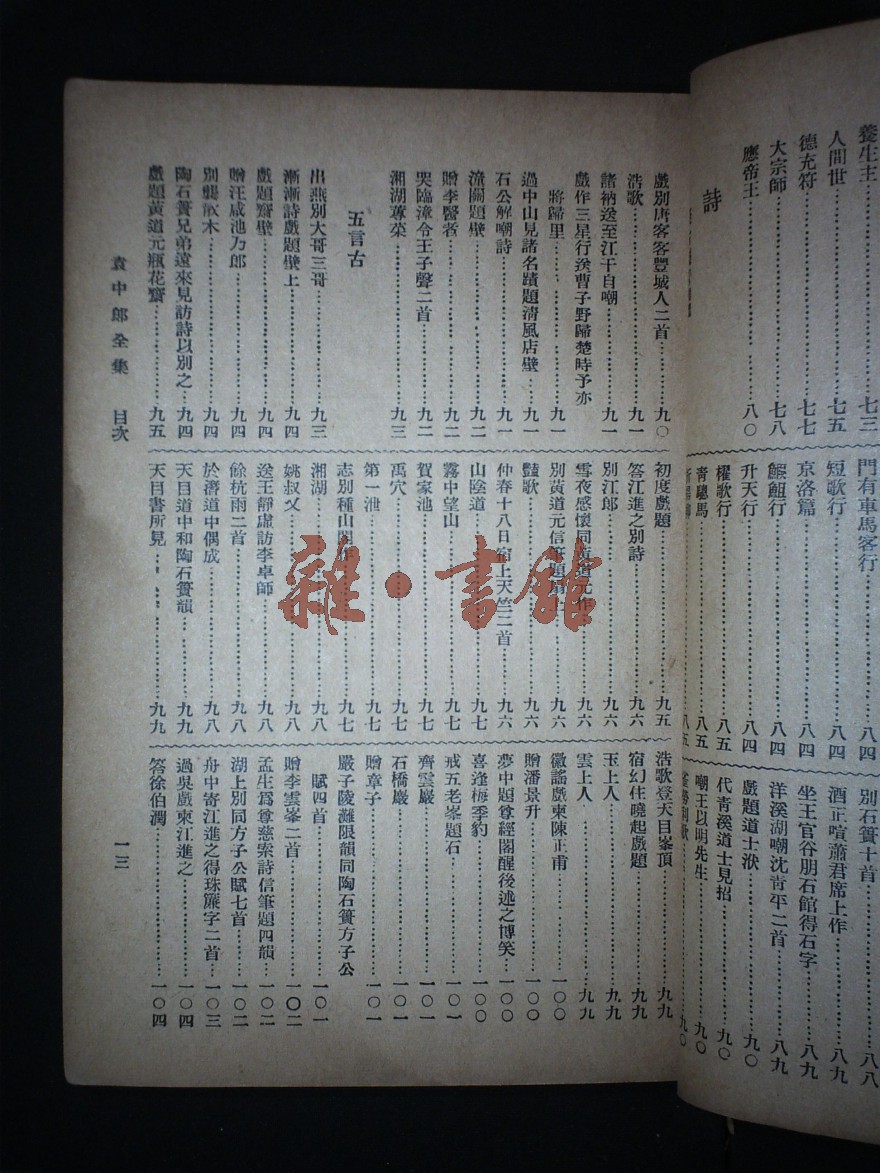 養生主……七三
人間世……七五
德充符……七七
大宗師……七八
應帝王……八〇
詩
門有車馬客行……八四
短歌行……八四
京洛篇……八四
升天行……八四
櫂歌行……八五
青驄馬……八五
別石簣十首……八八
酒正喧蕭君席上作……八九
坐王官谷朋石館得石字……八九
洋溪湖嘲沈青平二首……八九
戲題道士洑……九〇
代青溪道士見招……九〇
嘲王以明先生……九〇
戲別唐客客豐城人二首……九〇
浩歌……九一
諸衲送至江干自嘲……九一
戲作三星行送曹子野歸楚時予亦
將歸里……九一
過中山見諸名蹟題清風店壁……九一
石公解嘲詩……九一
潼關題壁……九二
贈李醫者……九二
哭臨漳令王子聲二首……九二
湘湖蓴菜……九三
五言古
出燕別大哥三哥……九三
漸漸詩戲題壁上……九四
戲題齋壁……九四
贈汪咸池乃郎……九四
別龔散木……九四
陶石簣兄弟遠來見訪詩以別之……九四
戲題黃道元瓶花齋……九五
初度戲題……九五
答江進之別詩……九六
別江郎……九六
雪夜感懷同黃道元作……九六
別黃道元信筆題扇……九六
豔歌……九六
仲春十八日宿上天竺二首……九六
山陰道……九七
霧中望山……九七
賀家池……九七
禹穴……九七
第一泄……九七
志別種山閣作……九七
湘湖……九八
姚叔乂……九八
送王靜虛訪李卓師……九八
餘杭雨二首……九八
於潛道中偶成……九八
天目道中和陶石簣韻……九九
天目書所見……九九
浩歌登天目峯頂……九九
宿幻住曉起戲題……九九
玉上人……九九
雲上人……九九
徽謠戲柬陳正甫……一〇〇
贈潘景升……一〇〇
夢中題尊經閣醒後述之博笑……一〇〇
喜逢梅季豹……一〇〇
戒五老峯題石……一〇一
齊雲巖……一〇一
石橋巖……一〇一
贈章子……一〇一
嚴子陵灘限韻同陶石簣方子公
賦四首……一〇一
贈李雲峯二首……一〇二
孟生爲尊慈索詩信筆題四韻……一〇二
湖上別同方子公賦七首……一〇二
舟中寄江進之得珠簾字二首……一〇三
過吳戲東江進之……一〇四
答徐伯澗……一〇四
袁中郎全集　目次
一三
雜·書館